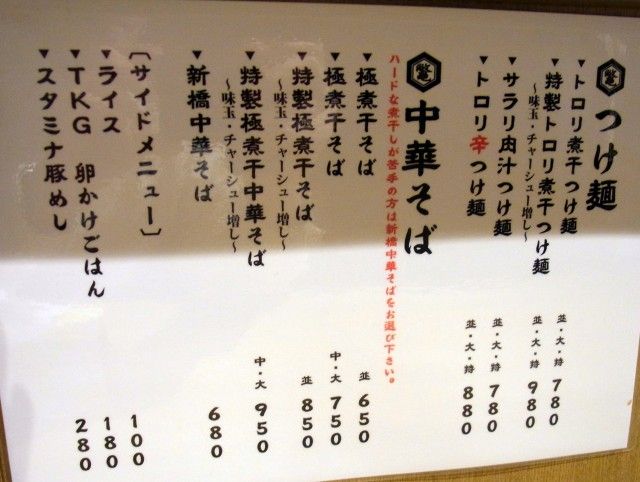 つけ麺
▼トロリ煮干つけ麺 並・大・特 780
▼特製トロリ煮干つけ麺 並・大・特 980
～味玉・チャーシュー増し～
▼サラリ肉汁つけ麺 並・大・特 780
▼トロリ辛つけ麺 並・大・特 880
中華そば
ハードな煮干しが苦手の方は新橋中華そばをお選び下さい。
▼極煮干そば 並 650
▼極煮干そば 中・大 750
▼特製極煮干そば 並 850
～味玉・チャーシュー増し～
▼特製極煮干中華そば 中・大 950
～味玉・チャーシュー増し～
▼新橋中華そば 680
〔サイドメニュー〕
▼ライス 100
▼TKG 卵かけごはん 180
▼スタミナ豚めし 280